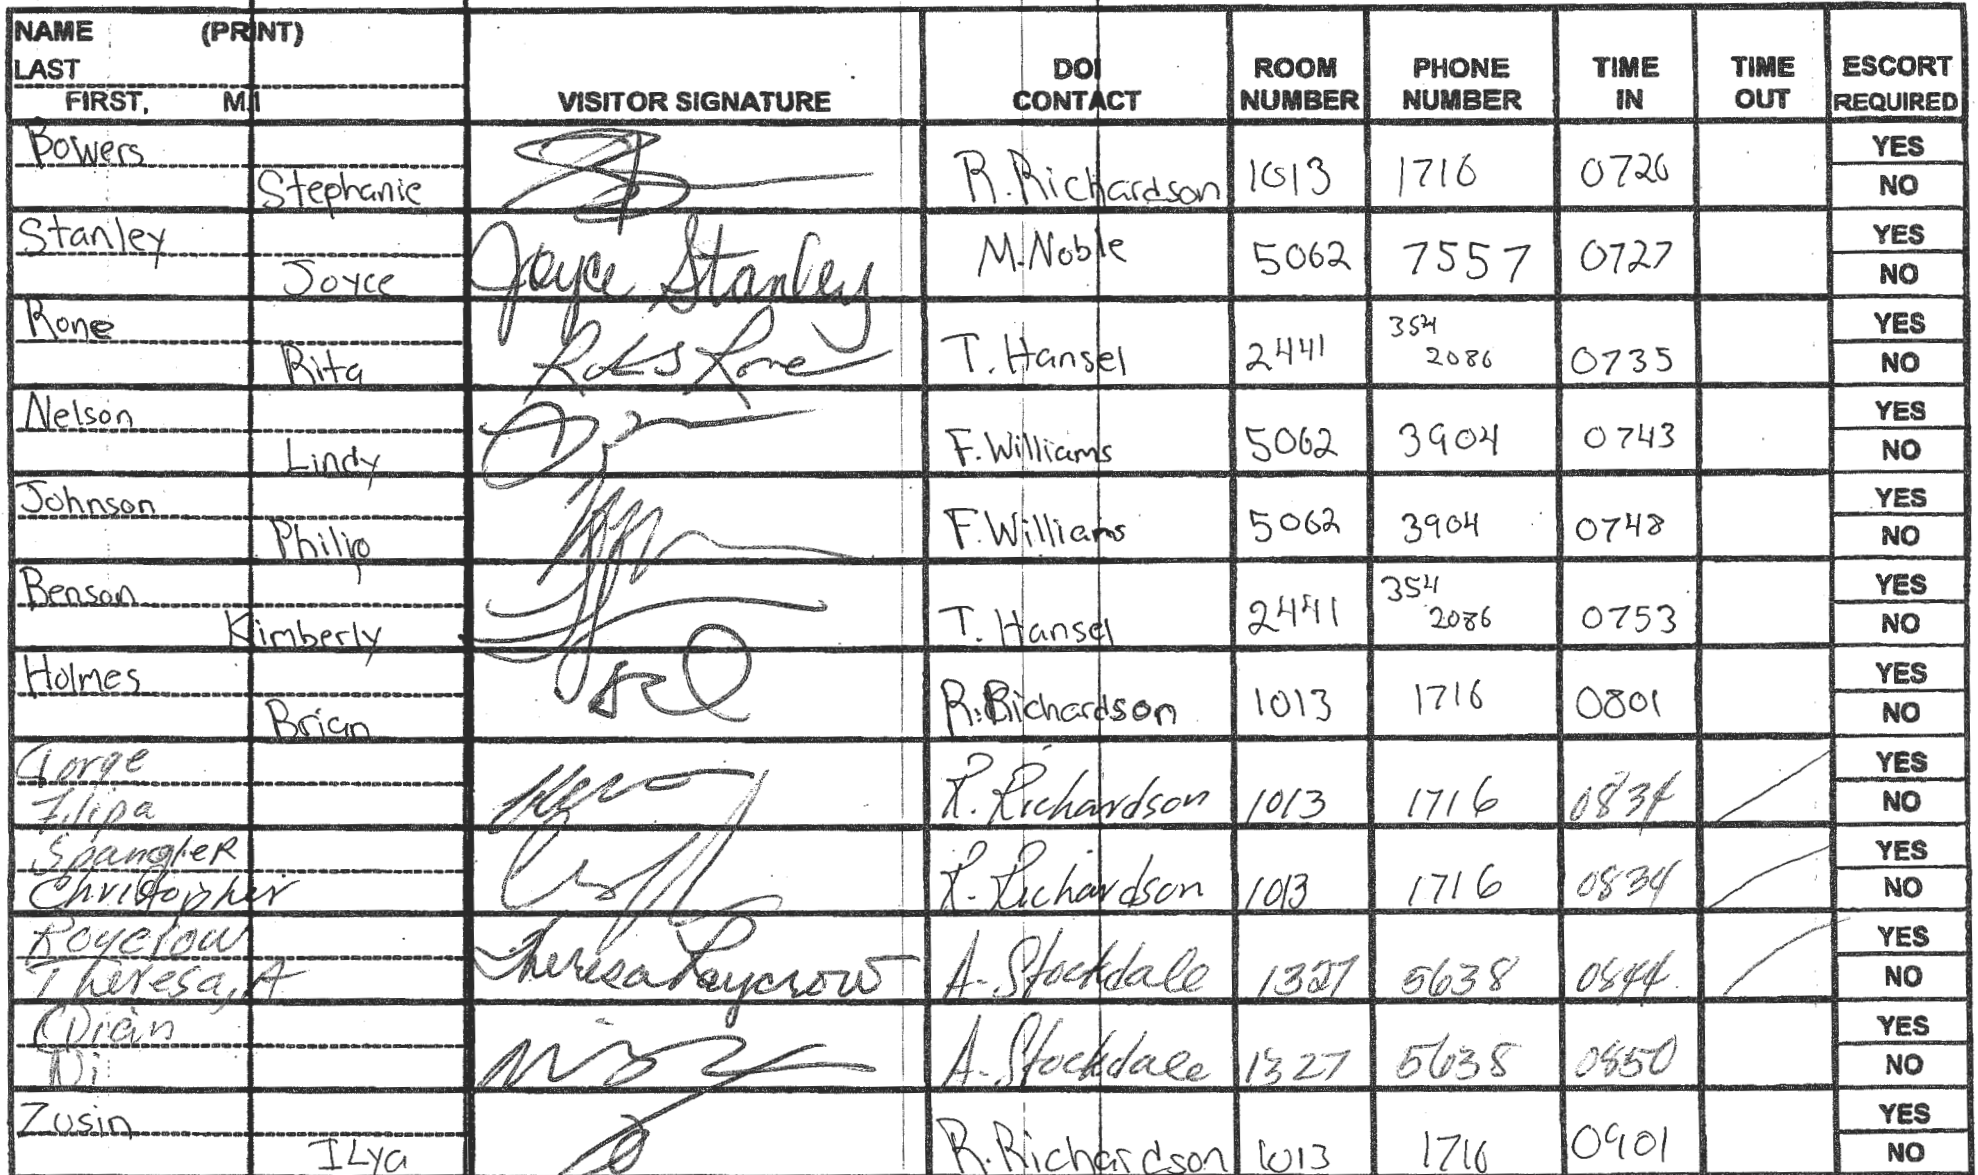 NAME (PRINT)
LAST
FIRST, M.I
VISITOR SIGNATURE
DOI CONTACT
ROOM NUMBER
PHONE NUMBER
TIME IN
TIME OUT
ESCORT REQUIRED
Bowers
Stephanie
R. Richardson 1013 1716 0720 YES NO
Stanley
Joyce
Joyce Stanley M. Noble 5062 7557 0727 YES NO
Rone
Rita
T. Hansel 2441 354 2086 0735 YES NO
Nelson
Lindy
F. Williams 5062 3904 0743 YES NO
Johnson
Philip
F. Williams 5062 3904 0748 YES NO
Benson
Kimberly
T. Hansel 2441 354 2086 0753 YES NO
Holmes
Brian
R. Richardson 1013 1716 0801 YES NO
Filipa
R. Richardson 1013 1716 0834 YES NO
Spangler
Christopher
R. Richardson 1013 1716 0834 YES NO
Roycrow
Theresa, A
Theresa Raycrow A. Stockdale 1327 5638 0844 YES NO
Di
A. Stockdale 1327 5638 0850 YES NO
Zusin
ILya
R. Richardson 1013 1716 0901 YES NO